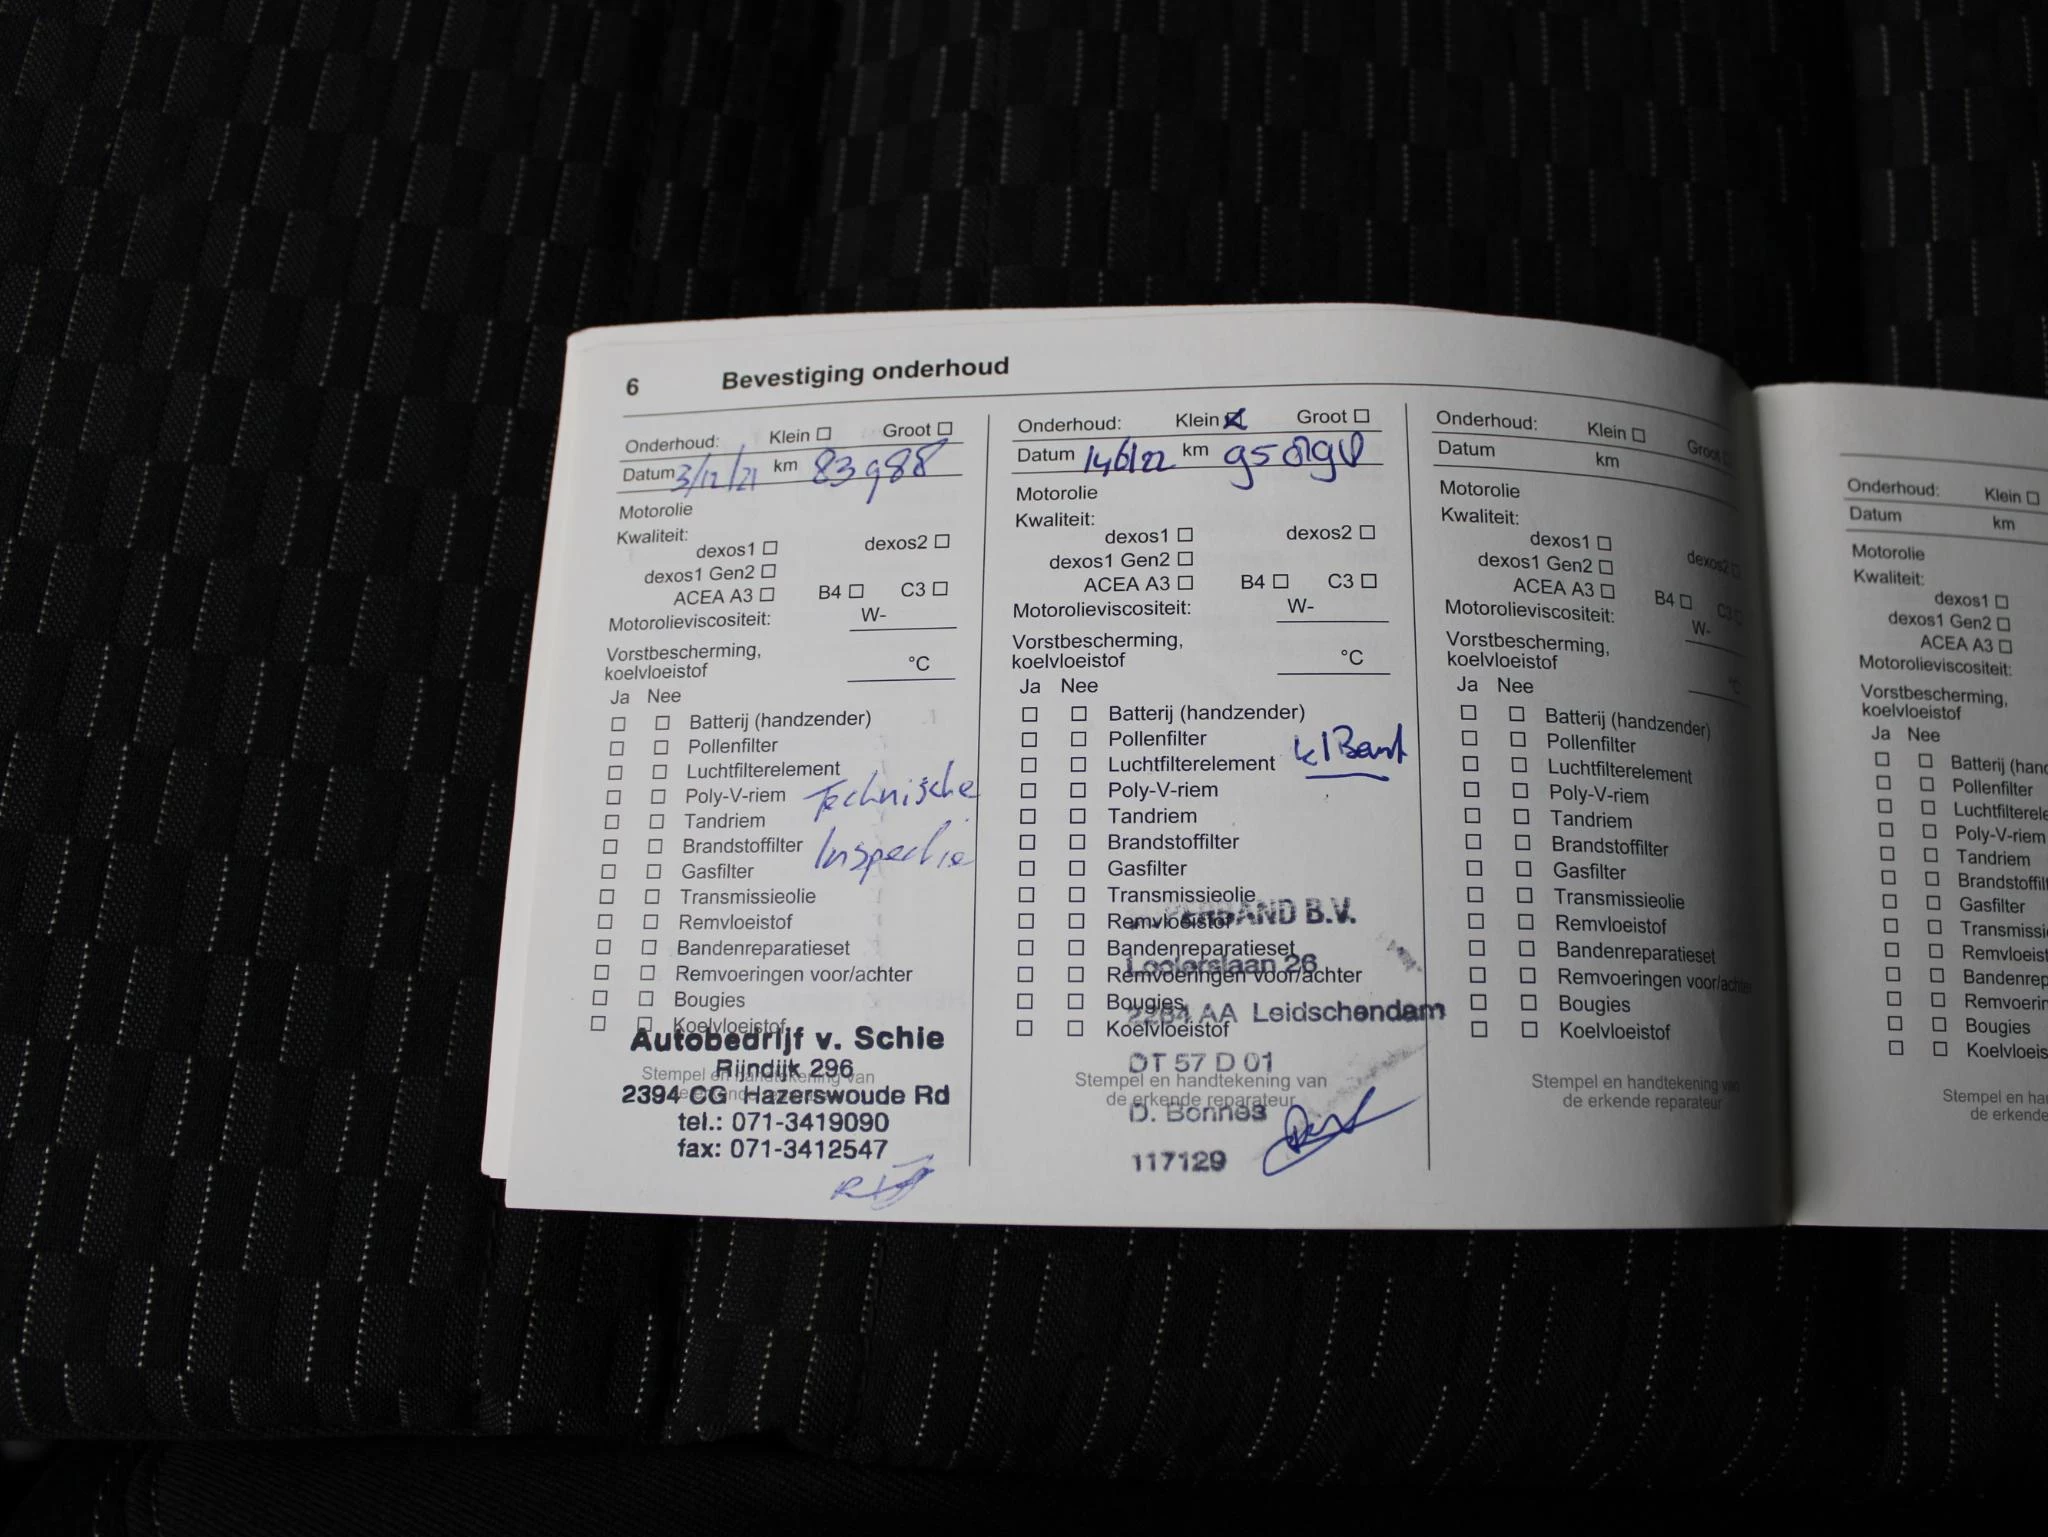 6 Bevestiging onderhoud
Onderhoud: Klein ☐ Groot ☐
Datum 3/12/21 km 83988
Motorolie
Kwaliteit:
dexos1 ☐ dexos2 ☐
dexos1 Gen2 ☐
ACEA A3 ☐ B4 ☐ C3 ☐
Motorolieviscositeit: W-
Vorstbescherming,
koelvloeistof °C
Ja Nee
☐ ☐ Batterij (handzender)
☐ ☐ Pollenfilter
☐ ☐ Luchtfilterelement
☐ ☐ Poly-V-riem Technische
☐ ☐ Tandriem
☐ ☐ Brandstoffilter Inspectie
☐ ☐ Gasfilter
☐ ☐ Transmissieolie
☐ ☐ Remvloeistof
☐ ☐ Bandenreparatieset
☐ ☐ Remvoeringen voor/achter
☐ ☐ Bougies
☐ ☐ Koelvloeistof
Autobedrijf v. Schie
Rijndijk 296
Stempel en handtekening van
2394 CG Hazerswoude Rd
de erkende reparateur
tel.: 071-3419090
fax: 071-3412547
Onderhoud: Klein ☒ Groot ☐
Datum 14/6/22 km
Motorolie
Kwaliteit:
dexos1 ☐ dexos2 ☐
dexos1 Gen2 ☐
ACEA A3 ☐ B4 ☐ C3 ☐
Motorolieviscositeit: W-
Vorstbescherming,
koelvloeistof °C
Ja Nee
☐ ☐ Batterij (handzender)
☐ ☐ Pollenfilter
☐ ☐ Luchtfilterelement
☐ ☐ Poly-V-riem
☐ ☐ Tandriem
☐ ☐ Brandstoffilter
☐ ☐ Gasfilter
☐ ☐ Transmissieolie
B.V.
☐ ☐ Remvloeistof
☐ ☐ Bandenreparatieset
26
☐ ☐ Remvoeringen voor/achter
☐ ☐ Bougies
2264 AA Leidschendam
☐ ☐ Koelvloeistof
DT 57 D 01
Stempel en handtekening van
de erkende reparateur
D. Bonnes
117129
Onderhoud: Klein ☐ Groot ☐
Datum km
Motorolie
Kwaliteit:
dexos1 ☐ dexos2 ☐
dexos1 Gen2 ☐
ACEA A3 ☐ B4 ☐ C3 ☐
Motorolieviscositeit: W-
Vorstbescherming,
koelvloeistof °C
Ja Nee
☐ ☐ Batterij (handzender)
☐ ☐ Pollenfilter
☐ ☐ Luchtfilterelement
☐ ☐ Poly-V-riem
☐ ☐ Tandriem
☐ ☐ Brandstoffilter
☐ ☐ Gasfilter
☐ ☐ Transmissieolie
☐ ☐ Remvloeistof
☐ ☐ Bandenreparatieset
☐ ☐ Remvoeringen voor/achter
☐ ☐ Bougies
☐ ☐ Koelvloeistof
Stempel en handtekening van
de erkende reparateur
Onderhoud: Klein ☐
Datum km
Motorolie
Kwaliteit:
dexos1 ☐
dexos1 Gen2 ☐
ACEA A3 ☐
Motorolieviscositeit:
Vorstbescherming,
koelvloeistof
Ja Nee
☐ ☐ Batterij (han
☐ ☐ Pollenfilter
☐ ☐ Luchtfilterele
☐ ☐ Poly-V-riem
☐ ☐ Tandriem
☐ ☐ Brandstoffilt
☐ ☐ Gasfilter
☐ ☐ Transmissi
☐ ☐ Remvloeist
☐ ☐ Bandenrep
☐ ☐ Remvoerin
☐ ☐ Bougies
☐ ☐ Koelvloeis
Stempel en ha
de erkende